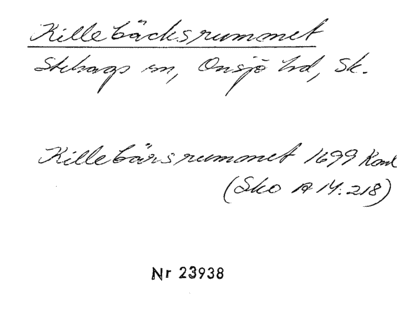 Killebäcksrummet
Stehags sn, Onsjö hd, Sk.
Killebärsrummet 1699 Konc
(Sko A 14:218)
Nr 23938